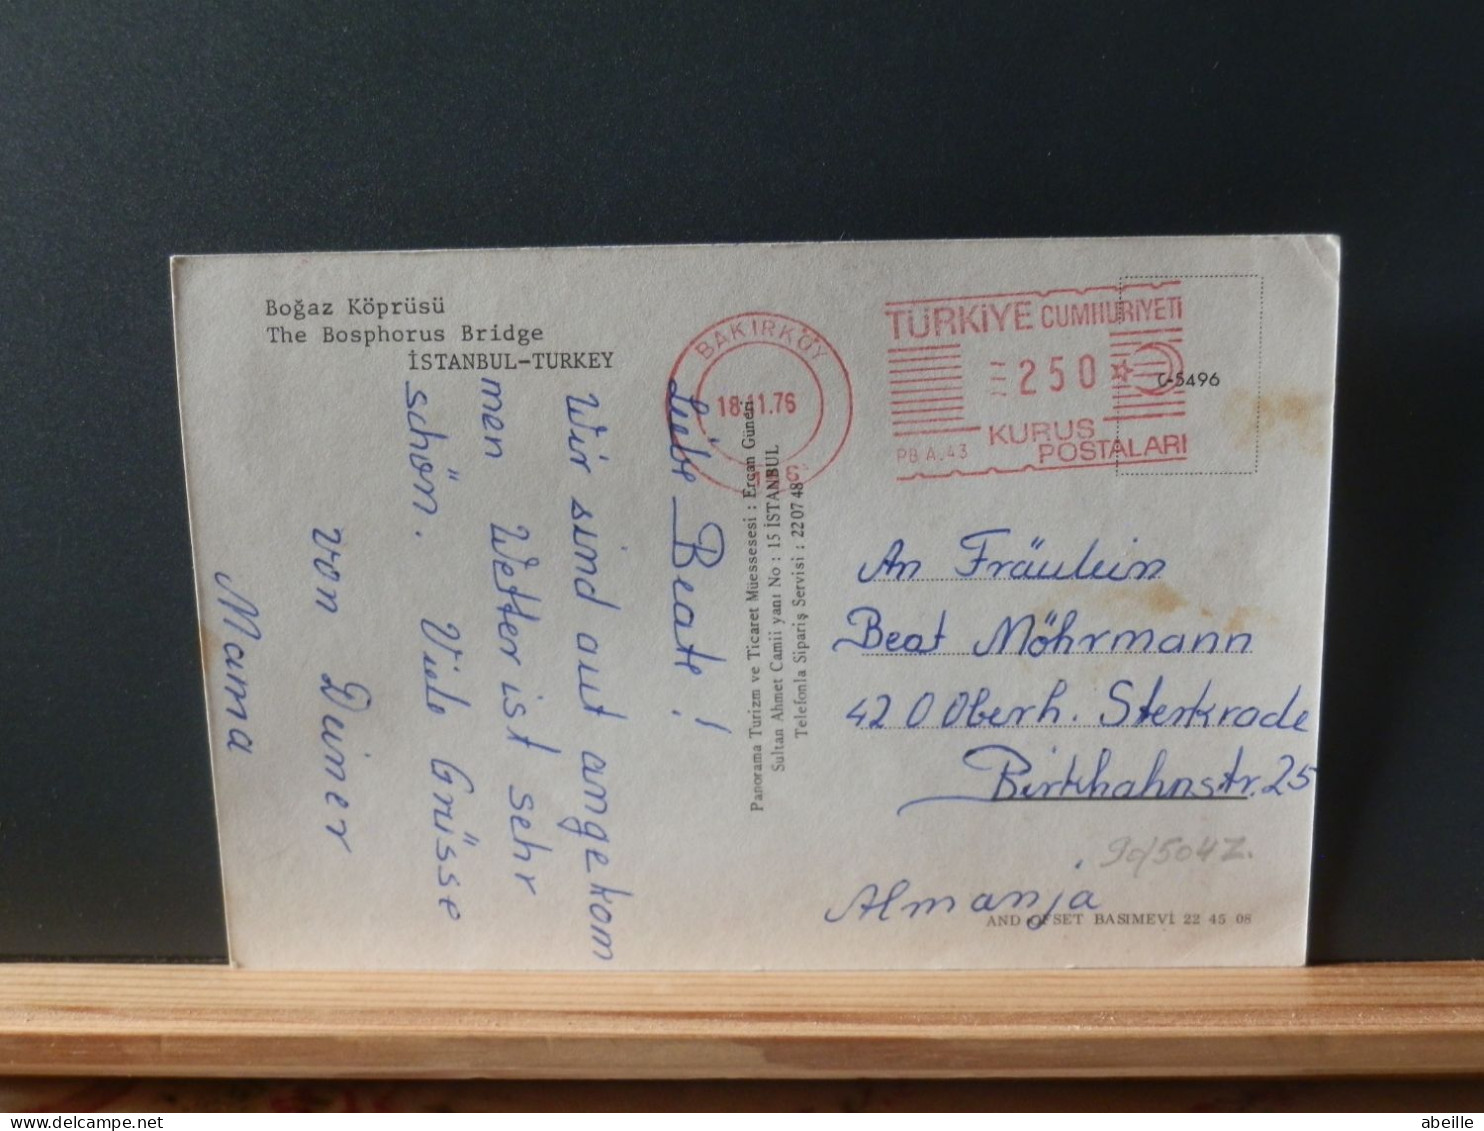 Boğaz Köprüsü
The Bosphorus Bridge
İSTANBUL-TURKEY
Liebe Beate!
Wir sind aut angekom
men Wetter ist sehr
schön. Viele Grüsse
von Deiner
Mama
Panorama Turizm ve Ticaret Müessesesi : Ercan Güneri
Sultan Ahmet Camii yanı No : 15 İSTANBUL
Telefonla Sipariş Servisi : 22 07 48
BAKIRKÖY
18.11.76
TÜRKİYE CUMHURİYETİ
250
KURUŞ
POSTALARI
PB A.43
C-5496
An Fräulein
Beat Möhrmann
420 Oberh. Sterkrade
Birkhahnstr. 25
90/5042.
Almanja
AND OFSET BASIMEVİ 22 45 08
abeille